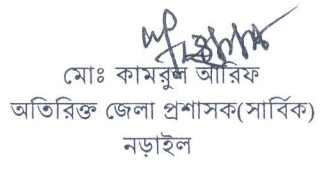 মোঃ কামরুল আরিফ
অতিরিক্ত জেলা প্রশাসক(সার্বিক)
নড়াইল